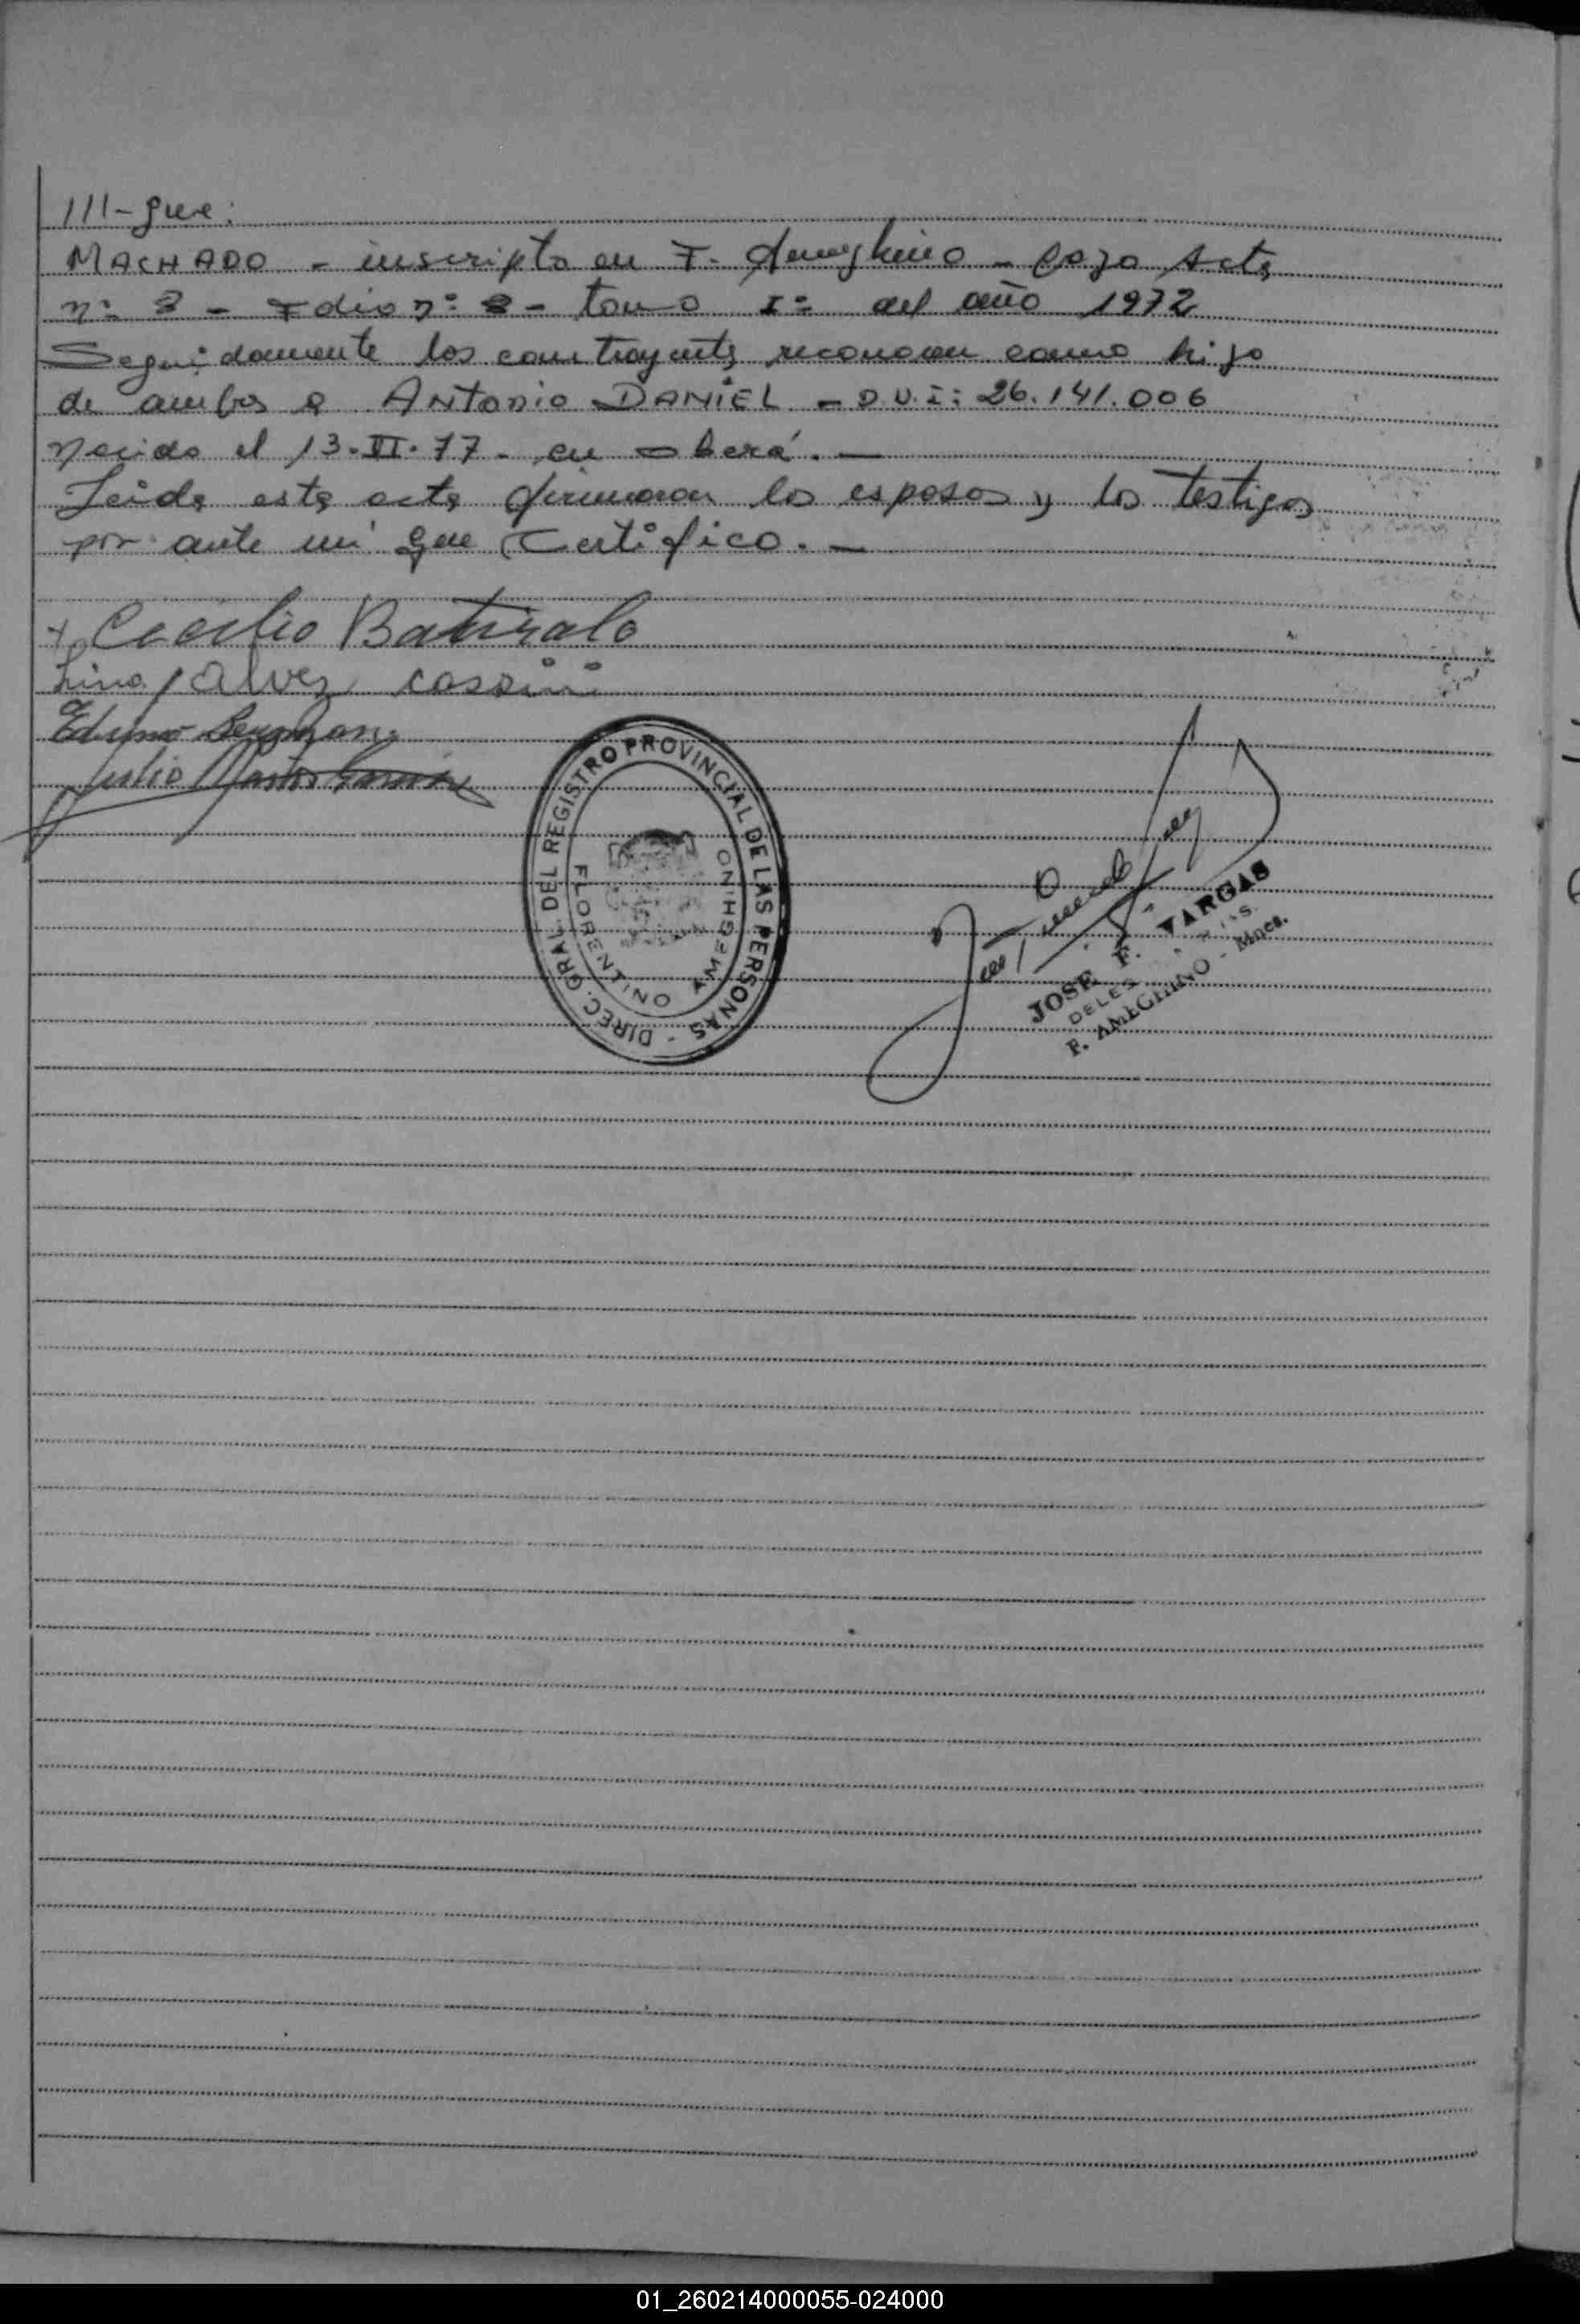 III-gue:
MACHADO - inscripto en F. Ameghino - bajo Acta
nº 3 - Folio nº 3 - tomo Iº del año 1972
Seguidamente los contrayentes reconocen como hijo
de ambos a ANTONIO DANIEL - D.N.I: 26.141.006
nacido el 13.VI.77. en Oberá. —
Leida esta acta firmaron los esposos y los testigos
por ante mi que Certifico. —
Cecilio
Lino Alvez
Julio
DIREC. GRAL. DEL REGISTRO PROVINCIAL DE LAS PERSONAS -
FLORENTINO AMEGHINO
JOSE F. VARGAS
F. AMEGHINO - Mnes.
01_260214000055-024000